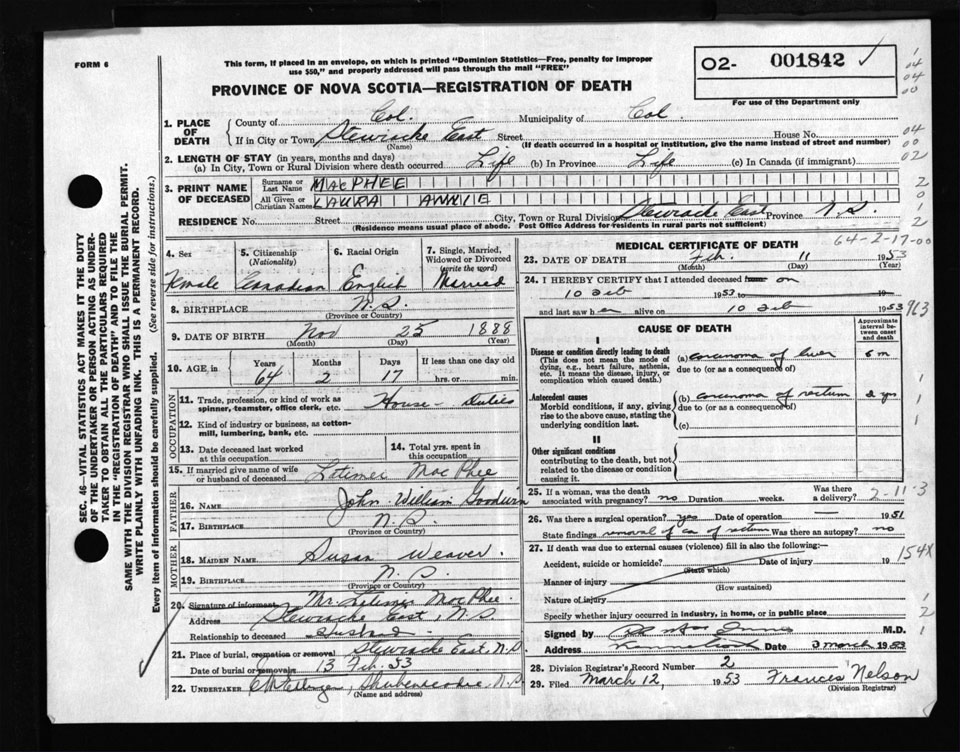 FORM 6
This form, if placed in an envelope, on which is printed "Dominion Statistics—Free, penalty for improper
use $50," and properly addressed will pass through the mail "FREE"
PROVINCE OF NOVA SCOTIA—REGISTRATION OF DEATH
O2- 001842 ✓
For use of the Department only
1. PLACE OF DEATH
County of Col. Municipality of Col.
If in City or Town Stewiacke East Street House No.
(Name) (If death occurred in a hospital or institution, give the name instead of street and number)
2. LENGTH OF STAY (in years, months and days)
(a) In City, Town or Rural Division where death occurred Life (b) In Province Life (c) In Canada (if immigrant)
3. PRINT NAME OF DECEASED
Surname or Last Name MACPHEE
All Given or Christian Names LAURA ANNIE
RESIDENCE No. Street City, Town or Rural Division Stewiacke East Province N.S.
(Residence means usual place of abode. Post Office Address for residents in rural parts not sufficient)
4. Sex 5. Citizenship (Nationality) 6. Racial Origin 7. Single, Married, Widowed or Divorced (write the word)
Female Canadian English Married
8. BIRTHPLACE N.S.
(Province or Country)
9. DATE OF BIRTH Nov 25 1888
(Month) (Day) (Year)
10. AGE in Years Months Days If less than one day old
64 2 17 hrs. or min.
OCCUPATION
11. Trade, profession, or kind of work as spinner, teamster, office clerk, etc. House - Duties
12. Kind of industry or business, as cotton-mill, lumbering, bank, etc.
13. Date deceased last worked at this occupation
14. Total yrs. spent in this occupation
15. If married give name of wife or husband of deceased Latimer MacPhee
FATHER
16. NAME John William Goodwin
17. BIRTHPLACE N.S.
(Province or Country)
MOTHER
18. MAIDEN NAME Susan Weaver.
19. BIRTHPLACE N.S.
(Province or Country)
20. Signature of informant Mr. Latimer MacPhee.
Address Stewiacke East, N.S.
Relationship to deceased Husband.
21. Place of burial, cremation or removal Stewiacke East, N.S.
Date of burial or removal 13 Feb. 53
22. UNDERTAKER Shubenacadie, N.S.
(Name and address)
SEC. 46—VITAL STATISTICS ACT MAKES IT THE DUTY
OF THE UNDERTAKER OR PERSON ACTING AS UNDER-
TAKER TO OBTAIN ALL THE PARTICULARS REQUIRED
IN THE "REGISTRATION OF DEATH" AND TO FILE THE
SAME WITH THE DIVISION REGISTRAR WHO SHALL ISSUE THE BURIAL PERMIT.
WRITE PLAINLY WITH UNFADING INK. THIS IS A PERMANENT RECORD.
Every item of information should be carefully supplied. (See reverse side for instructions.)
MEDICAL CERTIFICATE OF DEATH
64-2-17-00
23. DATE OF DEATH Feb. 11 1953
(Month) (Day) (Year)
24. I HEREBY CERTIFY that I attended deceased from on
10 Feb 1953 to 19
and last saw her alive on 10 Feb 1953
CAUSE OF DEATH
Approximate interval between onset and death
I
Disease or condition directly leading to death
(This does not mean the mode of dying, e.g., heart failure, asthenia, etc. It means the disease, injury, or complication which caused death.)
(a) carcinoma of liver 6 m
due to (or as a consequence of)
Antecedent causes
Morbid conditions, if any, giving rise to the above cause, stating the underlying condition last.
(b) carcinoma of rectum 2 yrs
due to (or as a consequence of)
(c)
II
Other significant conditions
contributing to the death, but not related to the disease or condition causing it.
25. If a woman, was the death associated with pregnancy? no Duration weeks. Was there a delivery?
2-11-3
26. Was there a surgical operation? yes Date of operation — 1951
State findings removal of ca of rectum Was there an autopsy? no
27. If death was due to external causes (violence) fill in also the following:—
Accident, suicide or homicide? Date of injury 19
(State which)
154X
Manner of injury
(How sustained)
Nature of injury
Specify whether injury occurred in industry, in home, or in public place
Signed by M.D.
Address Date 3 March 1953
28. Division Registrar's Record Number 2
29. Filed March 12, 1953 Frances Nelson
(Division Registrar)